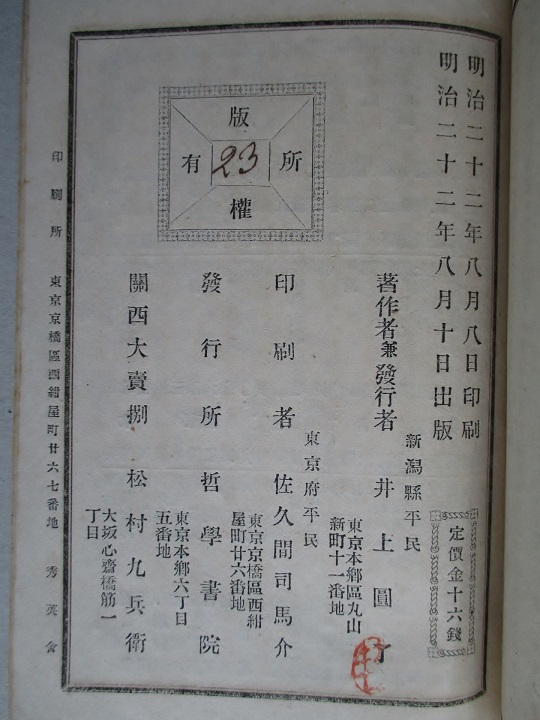 明治二十二年八月八日印刷
明治二十二年八月十日出版
定價金十六錢
新潟縣平民
著作者兼發行者 井上圓了
東京本鄉區丸山
新町十一番地
東京府平民
印刷者 佐久間司馬介
東京京橋區西紺
屋町廿六番地
發行所 哲學書院
東京本鄉六丁目
五番地
關西大賣捌 松村九兵衛
大坂心齋橋筋一
丁目
版權所有
23
印刷所 東京京橋區西紺屋町廿六七番地 秀英舍